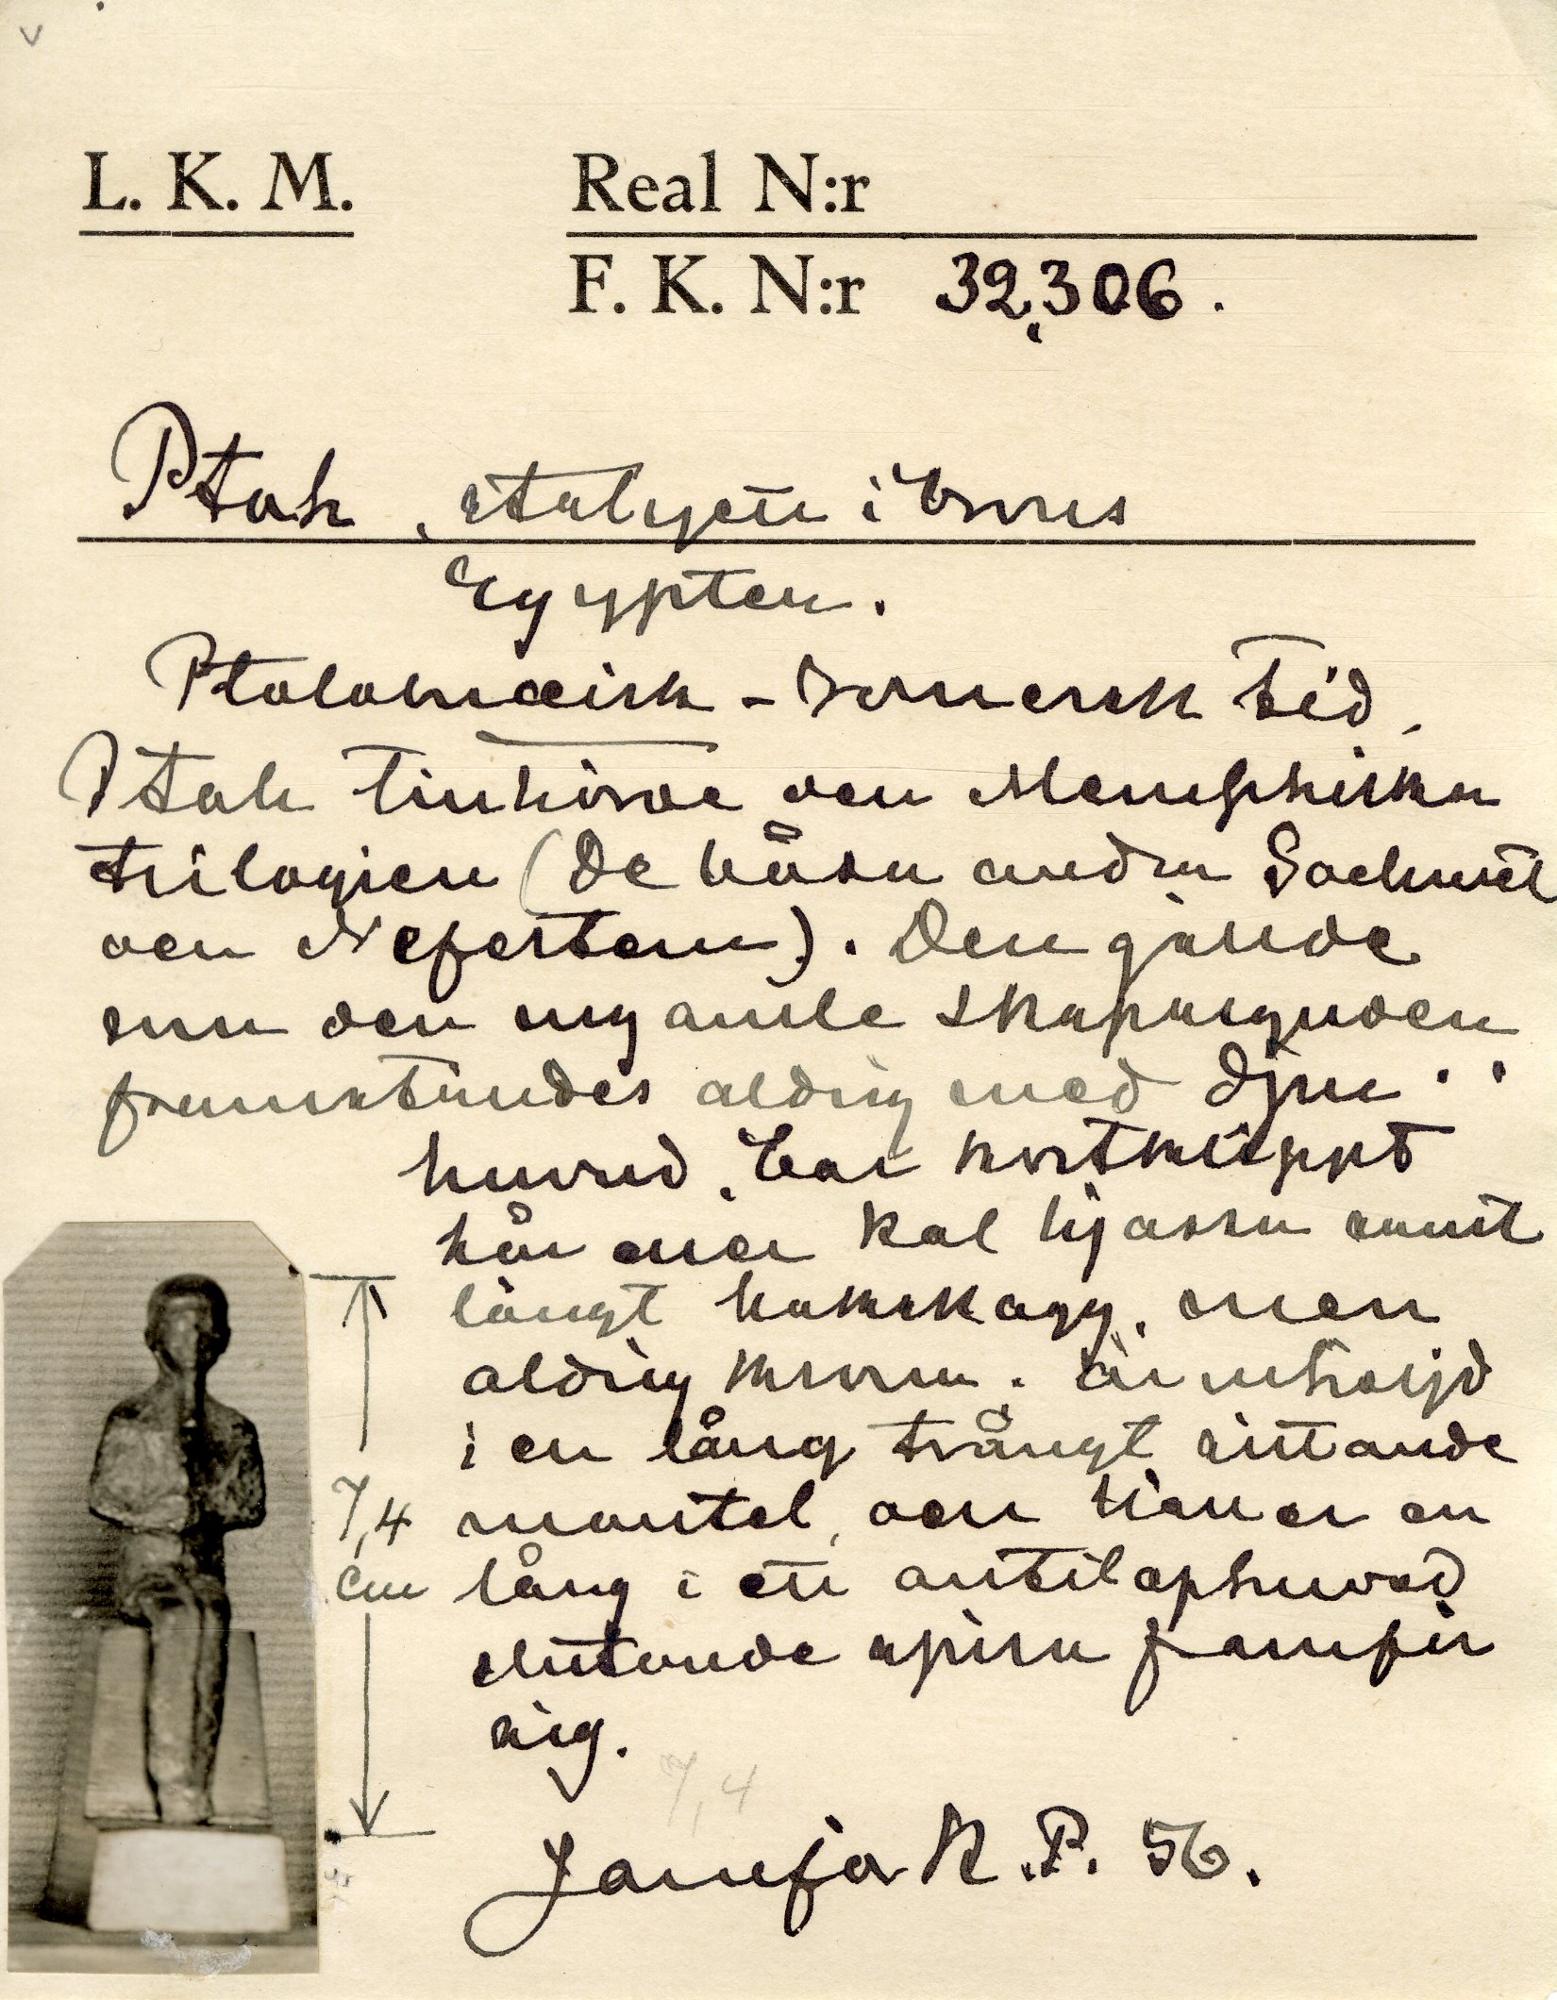 L. K. M.
Real N:r
F. K. N:r 32,306.
Ptah, statyett i brons
Egypten.
Ptolomæisk - romersk tid.
Ptah tillhörde den Memphiska
trilogien (De båda andra Sachmet
och Nefertem). Den gärde
den mg amle skapargguden
framställdes aldrig med djur-
huvud, bar kortklippt
hår eller kal hjässa samt
långt hakskägg, men
aldrig krona. är inhöljd
i en lång trångt sittande
mantel, och håller en
lång i ett antilophuvud
slutande spira framför
sig.
7,4
cm
7,4
Jamför K.P. 56.